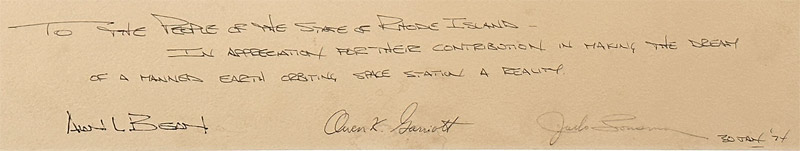 To the People of the State of Rhode Island –
In appreciation for their contribution in making the dream
of a manned earth orbiting space station a reality.
Alan L. Bean Owen K. Garriott Jack Lousma 30 Jan '74